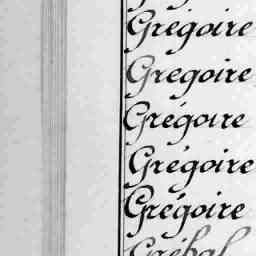 Grégoire
Gregoire
Grégoire
Grégoire
Grégoire
Grébal